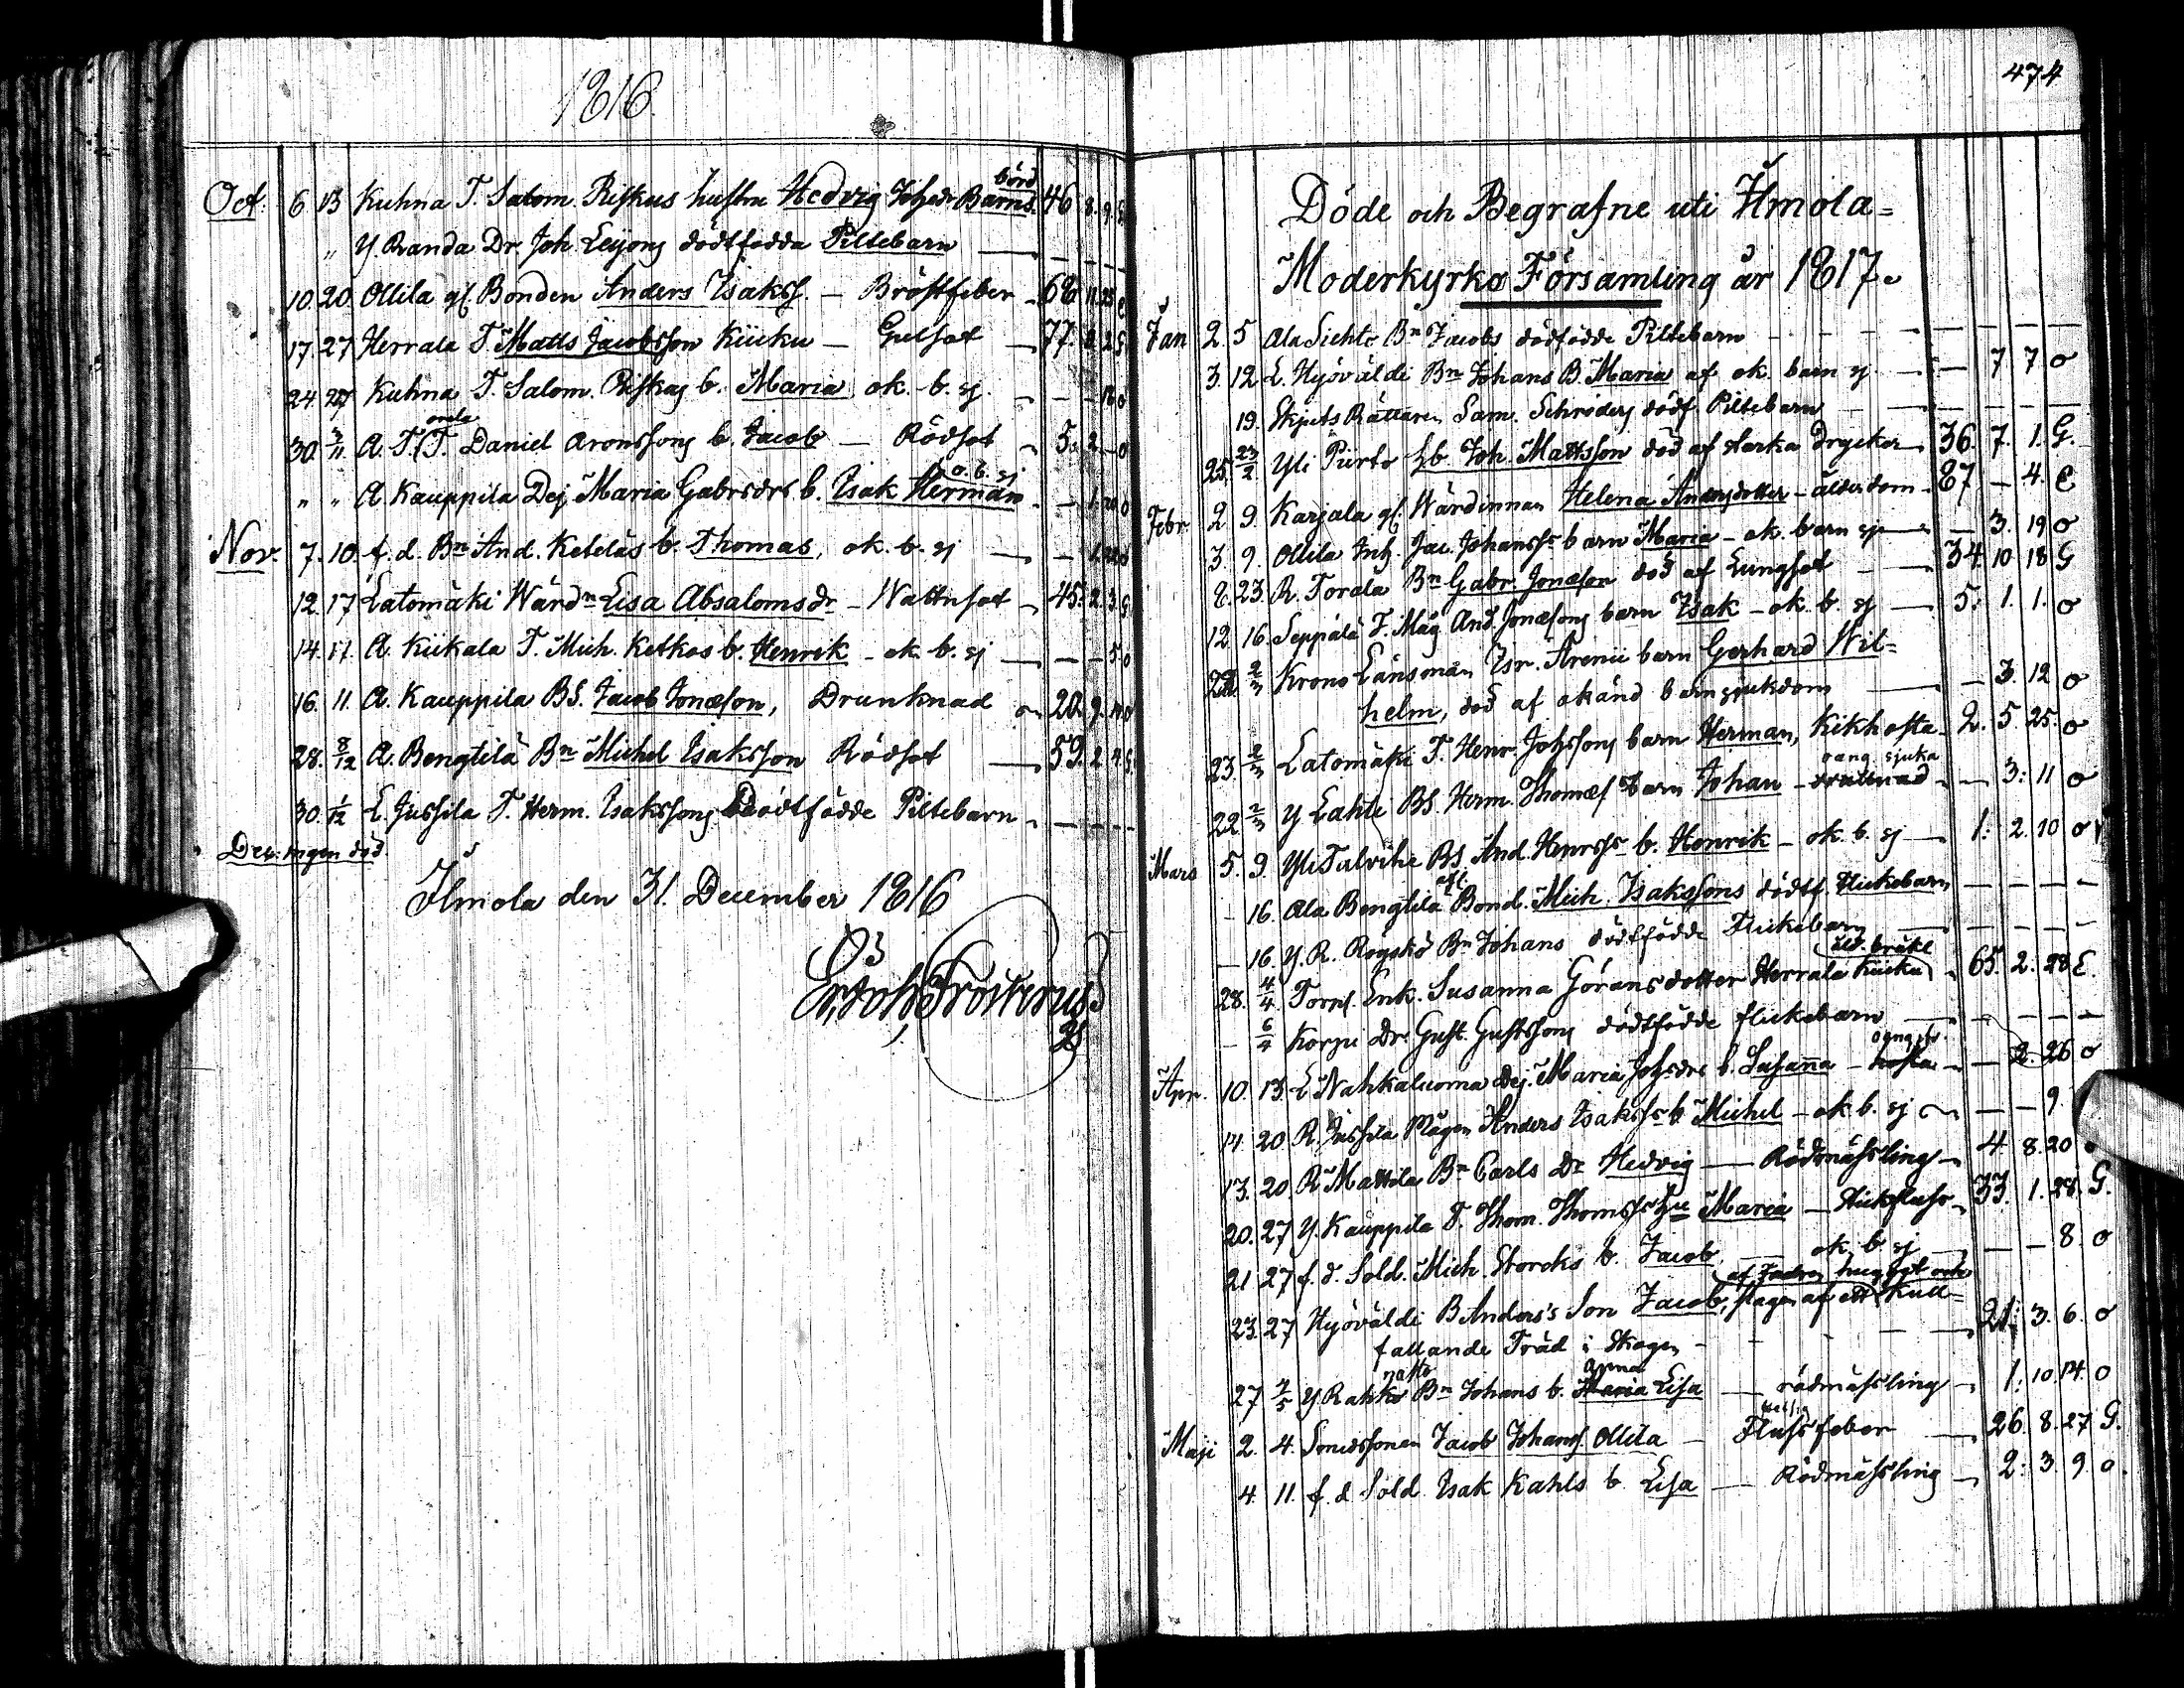 1816.
Oct. 6 13 Kuhna T. Salom. Riskus hustru Hedvig Johsdr Barnsbörd 46 8. 9. G
" Y. Randa Dr. Joh. Leijons dödfödda Piltebarn — — — —
10. 20. Ollila gl. Bonden Anders Isakss. — Bröstfeber 68 11. 25 E
17. 27 Herrala T. Matts Jacobsson Kiiku — Gulsot — 77. 8. 2 G
24 27 Kuhna T. Salom. Riskus b. Maria ok. b. sj. — — 16 o
30. 3/11 A. T. T. Daniel Aronssons b. Jacob — Rödsot 5. 2 — o
" " A. Kauppila Dej Maria Gabrsdrs b. Isak Herman o. b. sj — 1. 20 o
Nov. 7. 10. f. d. Bn And. Keteläs b. Thomas, ok. b. sj — —
12. 17 Latomäki Wärdn Lisa Absalomsdr — Wattusot 45. 2. 3. G
14. 17. A. Kiikala T. Mich. Ketkos b. Henrik — ok. b. sj — — — 5 o
16. 11. A. Kauppila BS. Jacob Jonæson, Drunknad 20. 9. 14 o
28. 8/12 A. Bengtilä Bn Michel Isaksson Rödsot — 59. 2. 4. G.
30. 1/12 L. Jussila T. Herm. Isakssons Dödfödde Piltebarn — — — —
Dec. ingen död.
Ilmola den 31. December 1816
Er. Joh. Frosterus
474
Döde och Begrafne uti Ilmola=
Moderkyrko Församling år 1817.
Jan 2. 5 Ala Sichto Bn Jacobs dödfödde Piltebarn — — — —
3. 12 L. Hyöväldi Bn Johans B. Maria af ok. barn sj — — 7 7 o
19. Skjuts Rättaren Sam. Schröders dödf. Piltebarn — — — —
25. 23/2 Yli Piirto hb. Joh. Mattsson död af starka Drycker 36. 7. 1. G.
Febr 2 9. Karjala gl. Wärdinnan Helena Andersdotter — ålderdom 87 — 4. E
3. 9. Ollila Inh. Jac. Johanss:s barn Maria — ok. barn sj — — 3. 19 o
8. 23. R. Torala Bn Gabr. Jonæson död af Lungsot — 34. 10 18 G
12 16. Seppälä T. Måg And. Jonæsons barn Isak — ok. b. sj — 5. 1. 1. o
2/3 Krono Länsman Isr. Arenii barn Gerhard Wil=
helm, död af okänd barnsjukdom — — 3. 12 o
23. 2/3 Latomäki T. Henr. Johssons barn Herman, Kikhosta 2. 5. 25. o
22 2/3 Y Lahti BS. Herm. Thomæs barn Johan — sjuka — 3: 11 o
Mars 5. 9 Yli Talvihe BS. And. Henrss:s b. Henrik — ok. b. sj — 1: 2. 10 o
— 16. Ala Bengtilä afl. Bond. Mich. Isakssons dödf. Flickebarn — — — —
— 16. Y. R. Röyskö Bn Johans dödfödde Flickebarn — — — —
28. 4/4 Torps. Enk. Susanna Göransdotter Herrala Kiiku 65. 2. 28 E.
— 6/4 Korpi Dr. Gust. Gustssons dödfödde flickebarn — — — —
Apr. 10. 13. L Nahkaluoma Dej. Maria Johsdrs b. Susanna — hosta — — 2. 26 o
14. 20 R. Jussila Mågen Anders Isakss:s b. Michel — ok b. sj — — — 9.
13. 20 R Mattila Bn Carls Dr Hedvig — Rödmässling — 4. 8. 20
20. 27 Y. Kauppila T. Thom. Thomss:s hu Maria — Stickfluss 33. 1. 28. G.
21 27 f. d. Sold. Mich. Storcks b. Jacob — ok b. sj — — — 8. o
23. 27 Hyöväldi B. Anders's Son Jacob, slagen af ett af Fadren hugget och Kull=
fallande Träd i Skogen — — — 21: 3. 6. o
27 4/5 Y. Rahko Bn Johans b. Anna Lisa — rödmässling — 1: 10. 14. o
Maji 2. 4. Smedssonen Jacob Johanss. Ollila — Flussfeber — 26. 8. 27 G.
4. 11. f. d Sold. Isak Kahls b. Lisa — Rödmässling — 2: 3. 9. o.